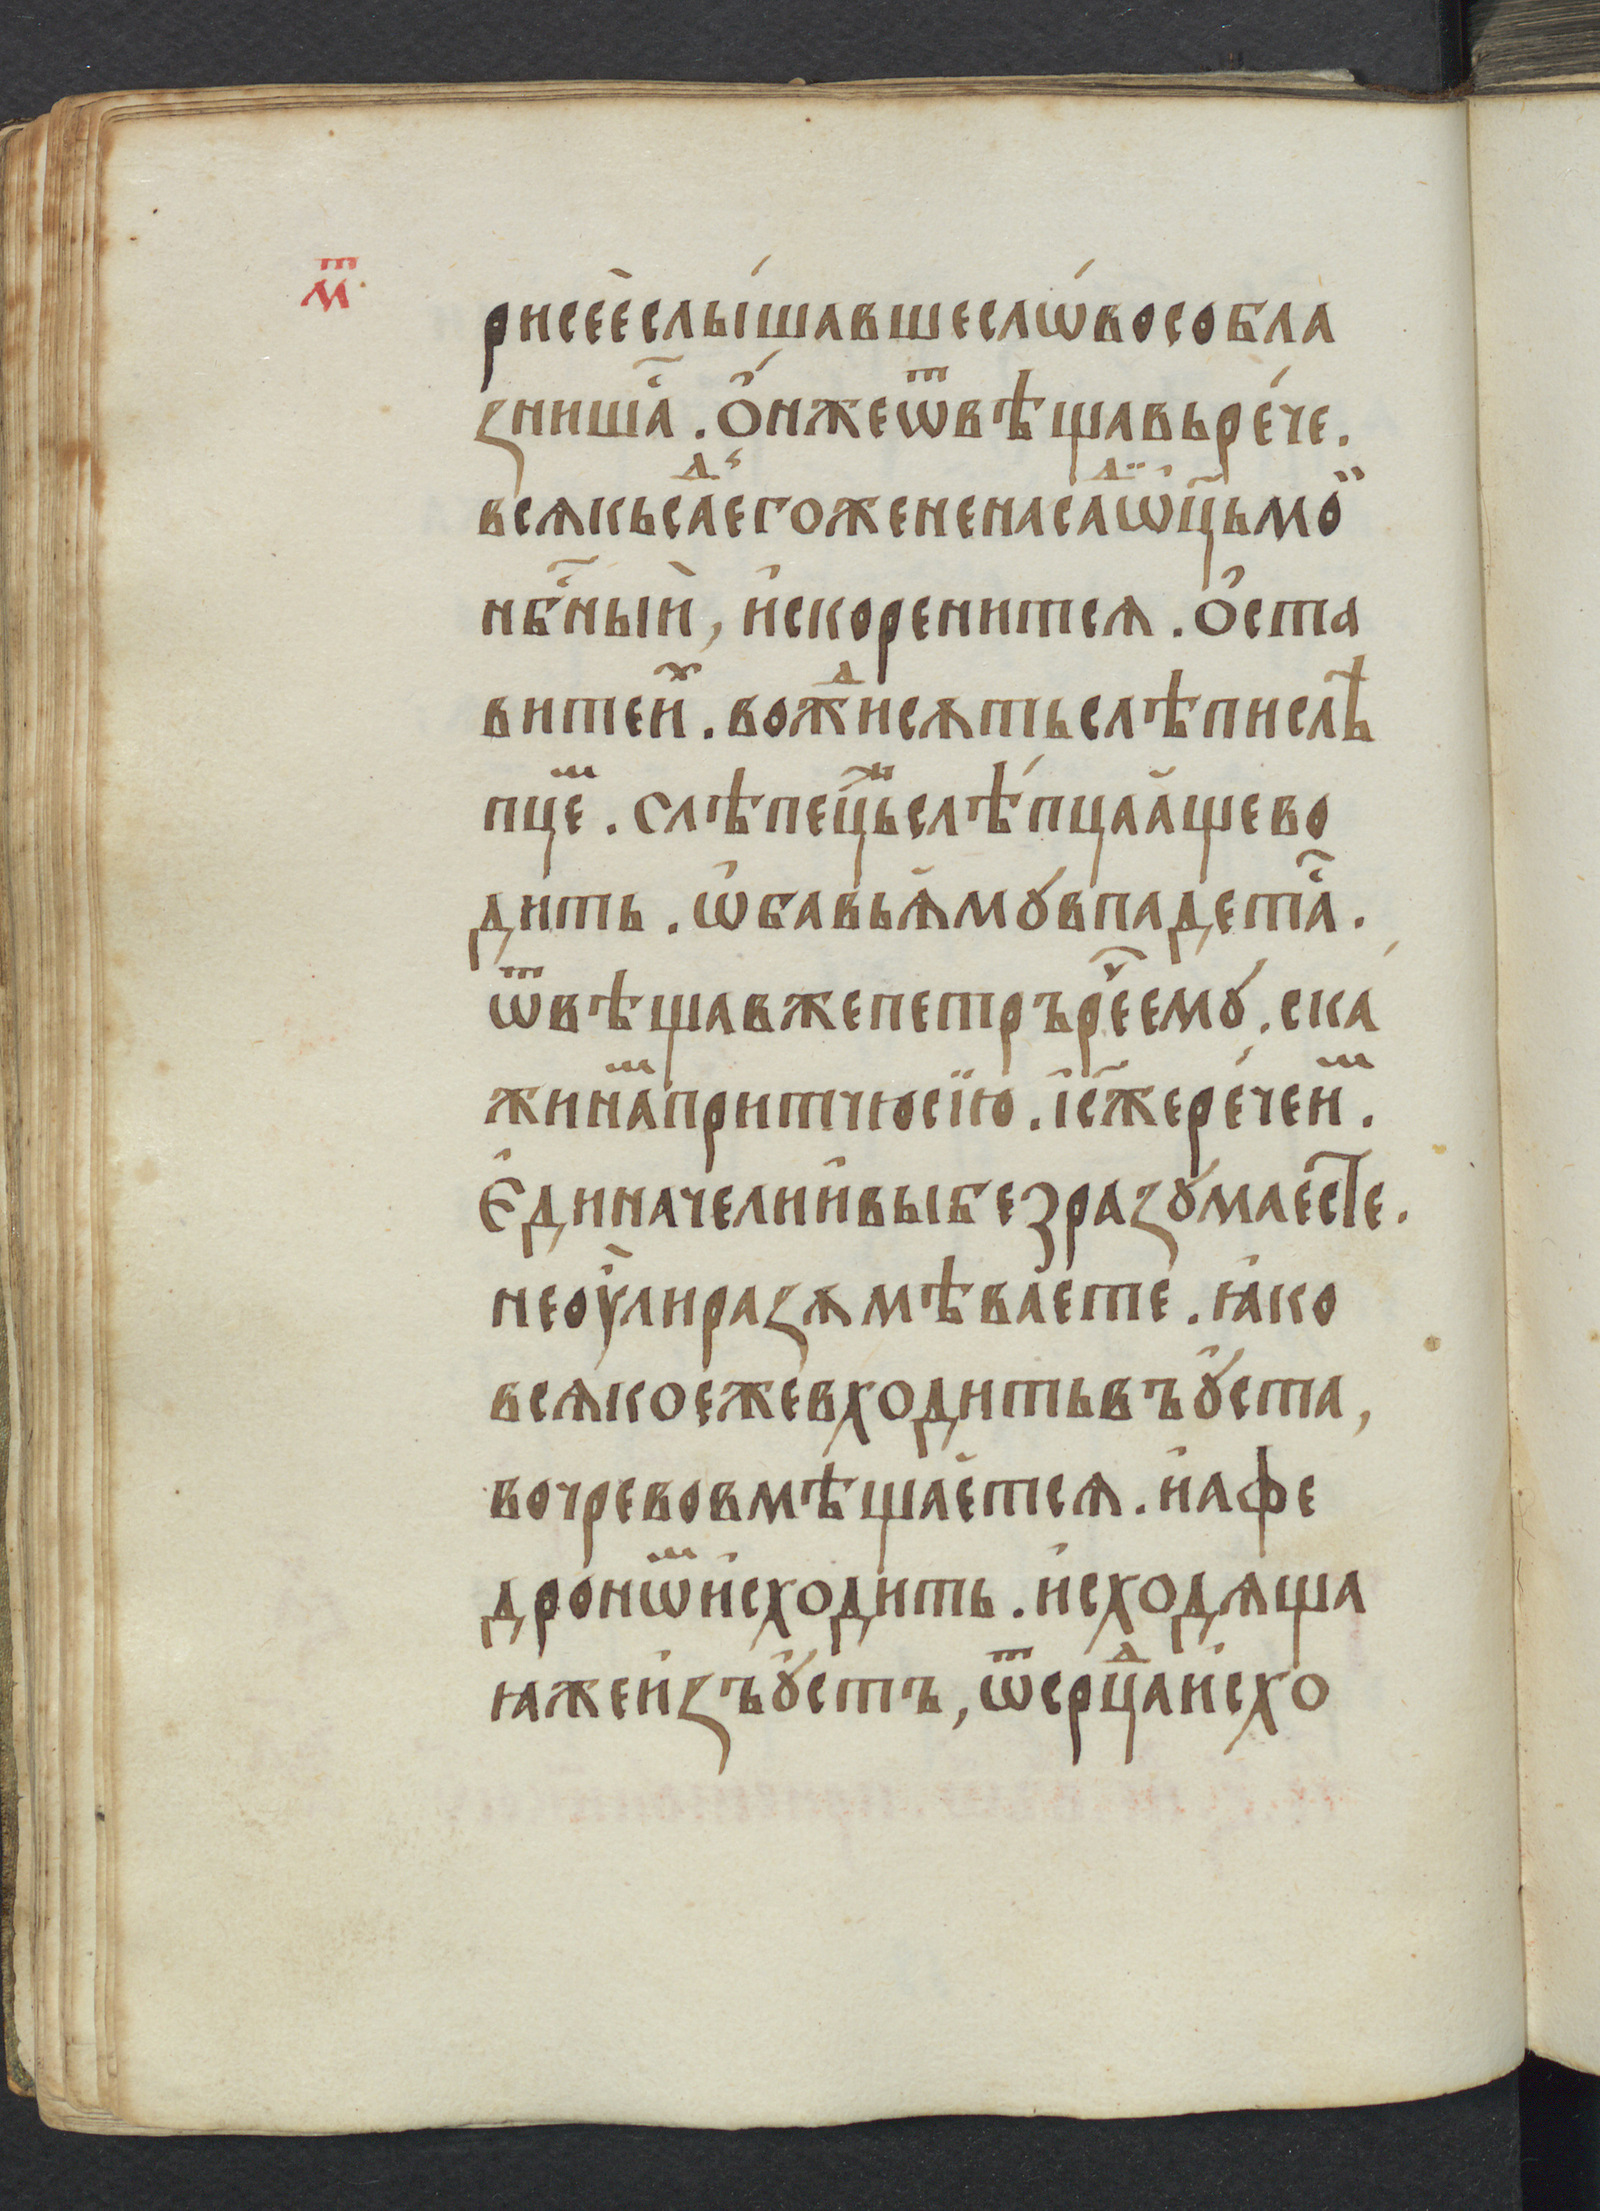 м҃т.
рисеѐслы́шавшеслѡ́восо бла
ꙁнишаⷭ҇. ѻ́нжеѿвѣщавьре́че.
всѧкьсаⷣегожененасаⷣѿц҃ьмӧ
нбⷭ҇ныѝ, и҆скоренитсѧ. ѻ҆ста
витеиⷯ. вожⷣисѧтьслѣпислѣ
пцеⷨ. слѣпец҃ьжⷤслѣ́пцаа҆щево
дить. ѡ҆бавьꙗ҆мꙋвпадетаⷭ҇.
ѿвѣщавжепетръреⷱ҇емꙋ. ска
жинаⷨпритчюсїю. і҆с҃жере́чеиⷨ.
Є҆диначелии҆выбезраꙁꙋмаестⷭ҇е.
неоу҆̀лираꙁѧмѣва́ете. ꙗ҆ко
всѧкоежевходитьвъꙋ҆ста,
вочревовмѣща́етсѧ. и҆афе
дрономⷨи҆сходить. и҆сходѧща
ꙗжеи҆ꙁъꙋ҆стъ, ѿсерⷣцаи҆схо